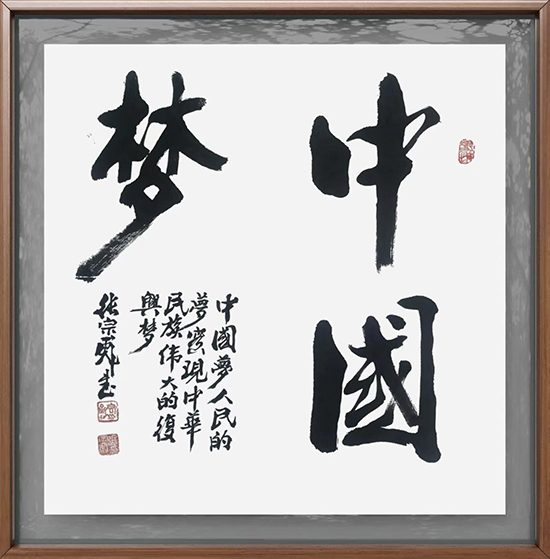 中國
梦
中國夢人民的
夢實現中華
民族伟大的復
興梦
張宗